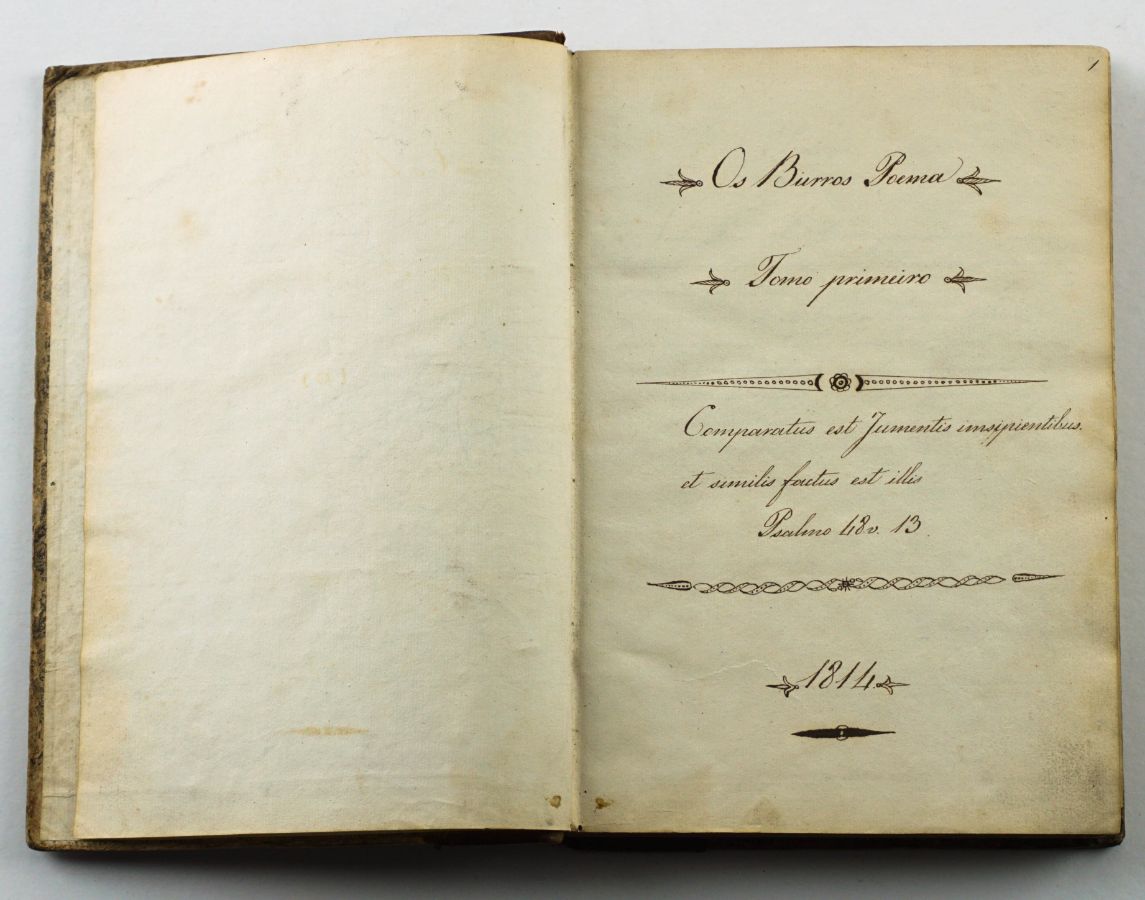 1
Os Burros Poema
Tomo primeiro
Comparatus est Jumentis imsipientibus.
et similis factus est illis
Psalmo 48 v. 13.
1814